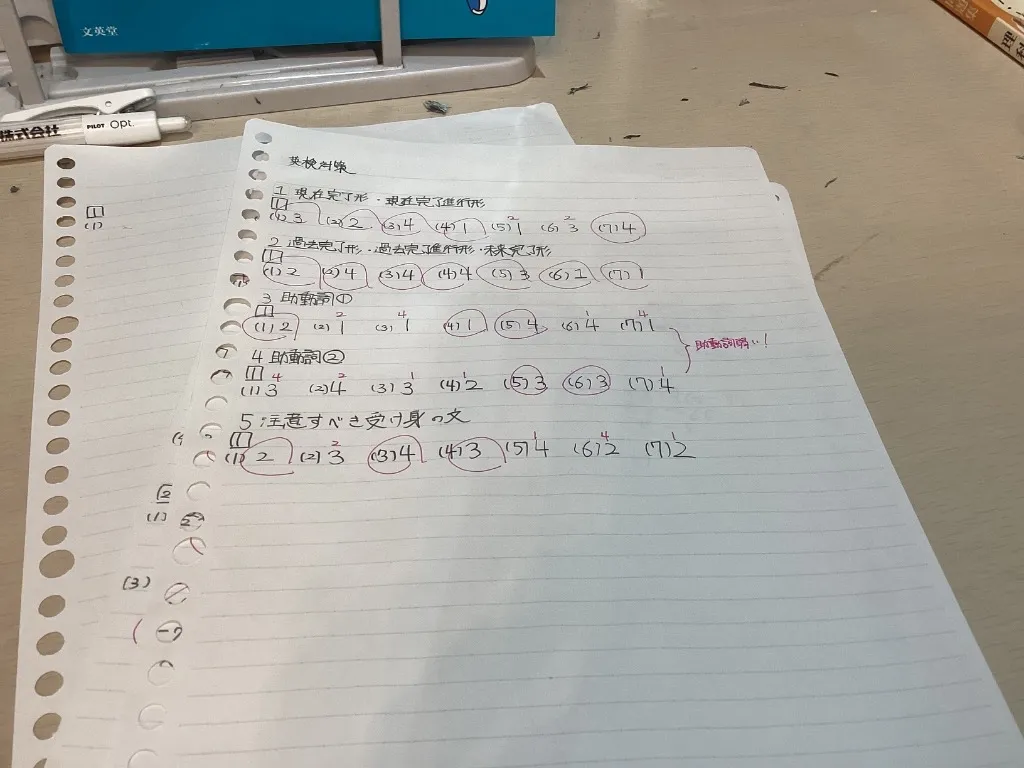 文英堂
株式会社 PILOT Opt.
英検対策
1 現在完了形・現在完了進行形
1
(1) 3 (2) 2 (3) 4 (4) 1 (5) 1 2 (6) 3 2 (7) 4
2 過去完了形・過去完了進行形・未来完了形
1
(1) 2 (2) 4 (3) 4 (4) 4 (5) 3 (6) 1 (7) 1
3 助動詞①
1
(1) 2 (2) 1 2 (3) 1 4 (4) 1 (5) 4 (6) 4 1 (7) 1 4
助動詞弱い!
4 助動詞②
1
(1) 3 4 (2) 4 2 (3) 3 1 (4) 2 1 (5) 3 (6) 3 (7) 4 1
5 注意すべき受け身の文
1
(1) 2 (2) 3 2 (3) 4 (4) 3 (5) 4 1 (6) 2 4 (7) 2 1
1
(1)
2
(1)
(3)